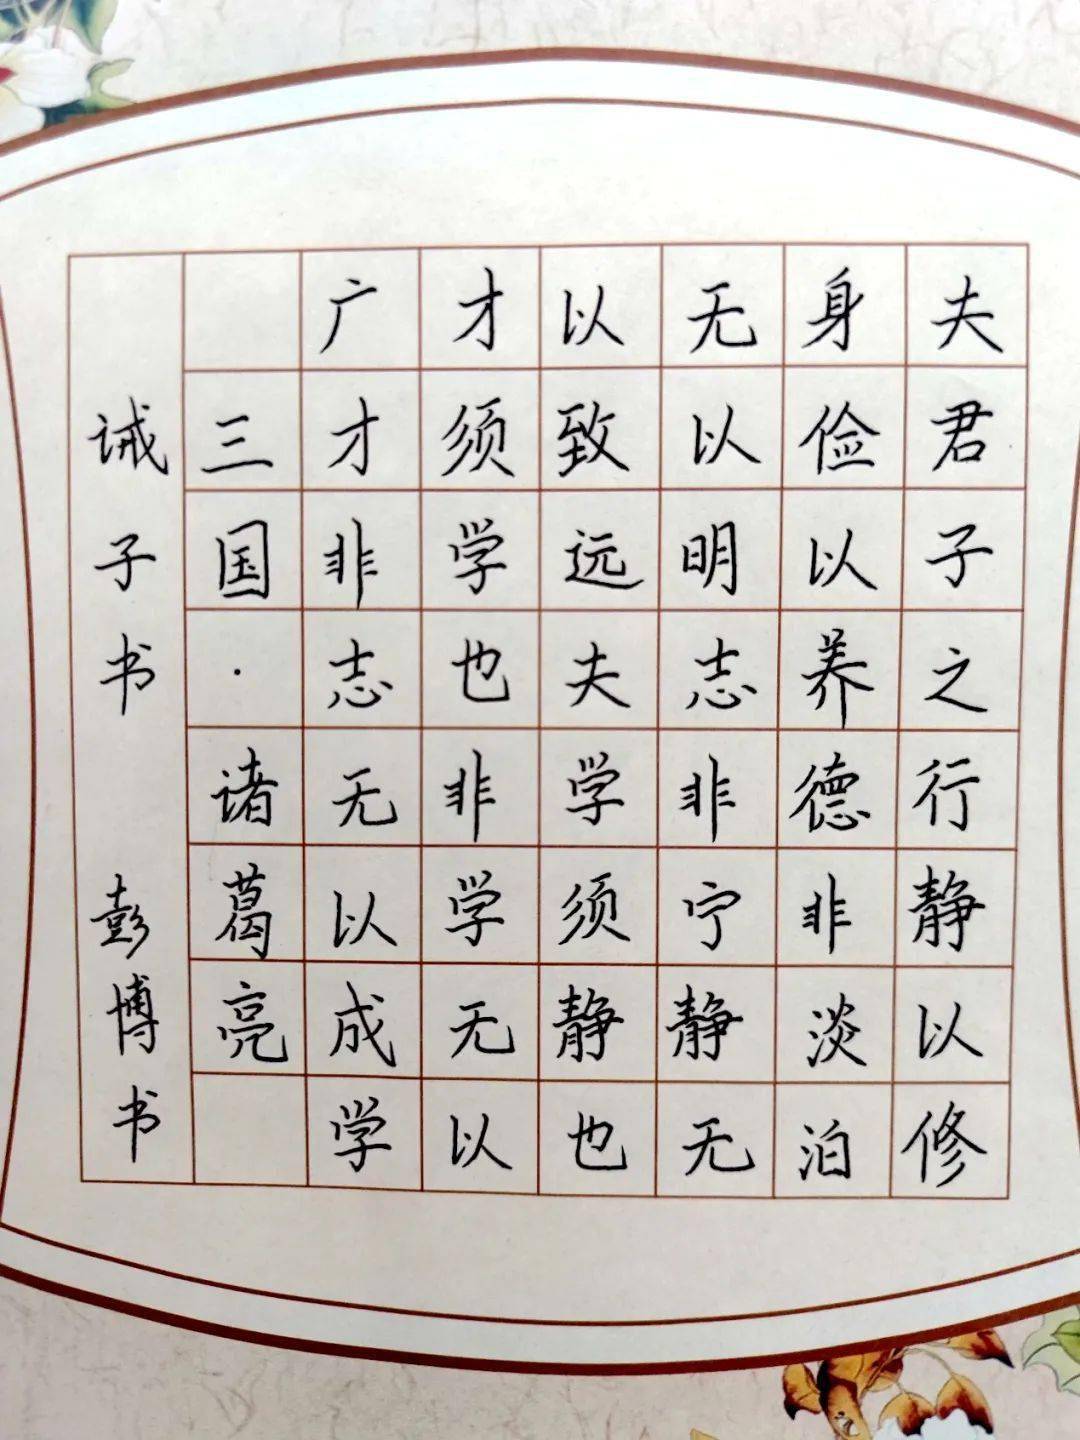 夫君子之行静以修
身俭以养德非淡泊
无以明志非宁静无
以致远夫学须静也
才须学也非学无以
广才非志无以成学
三国·诸葛亮
诫子书 彭博书